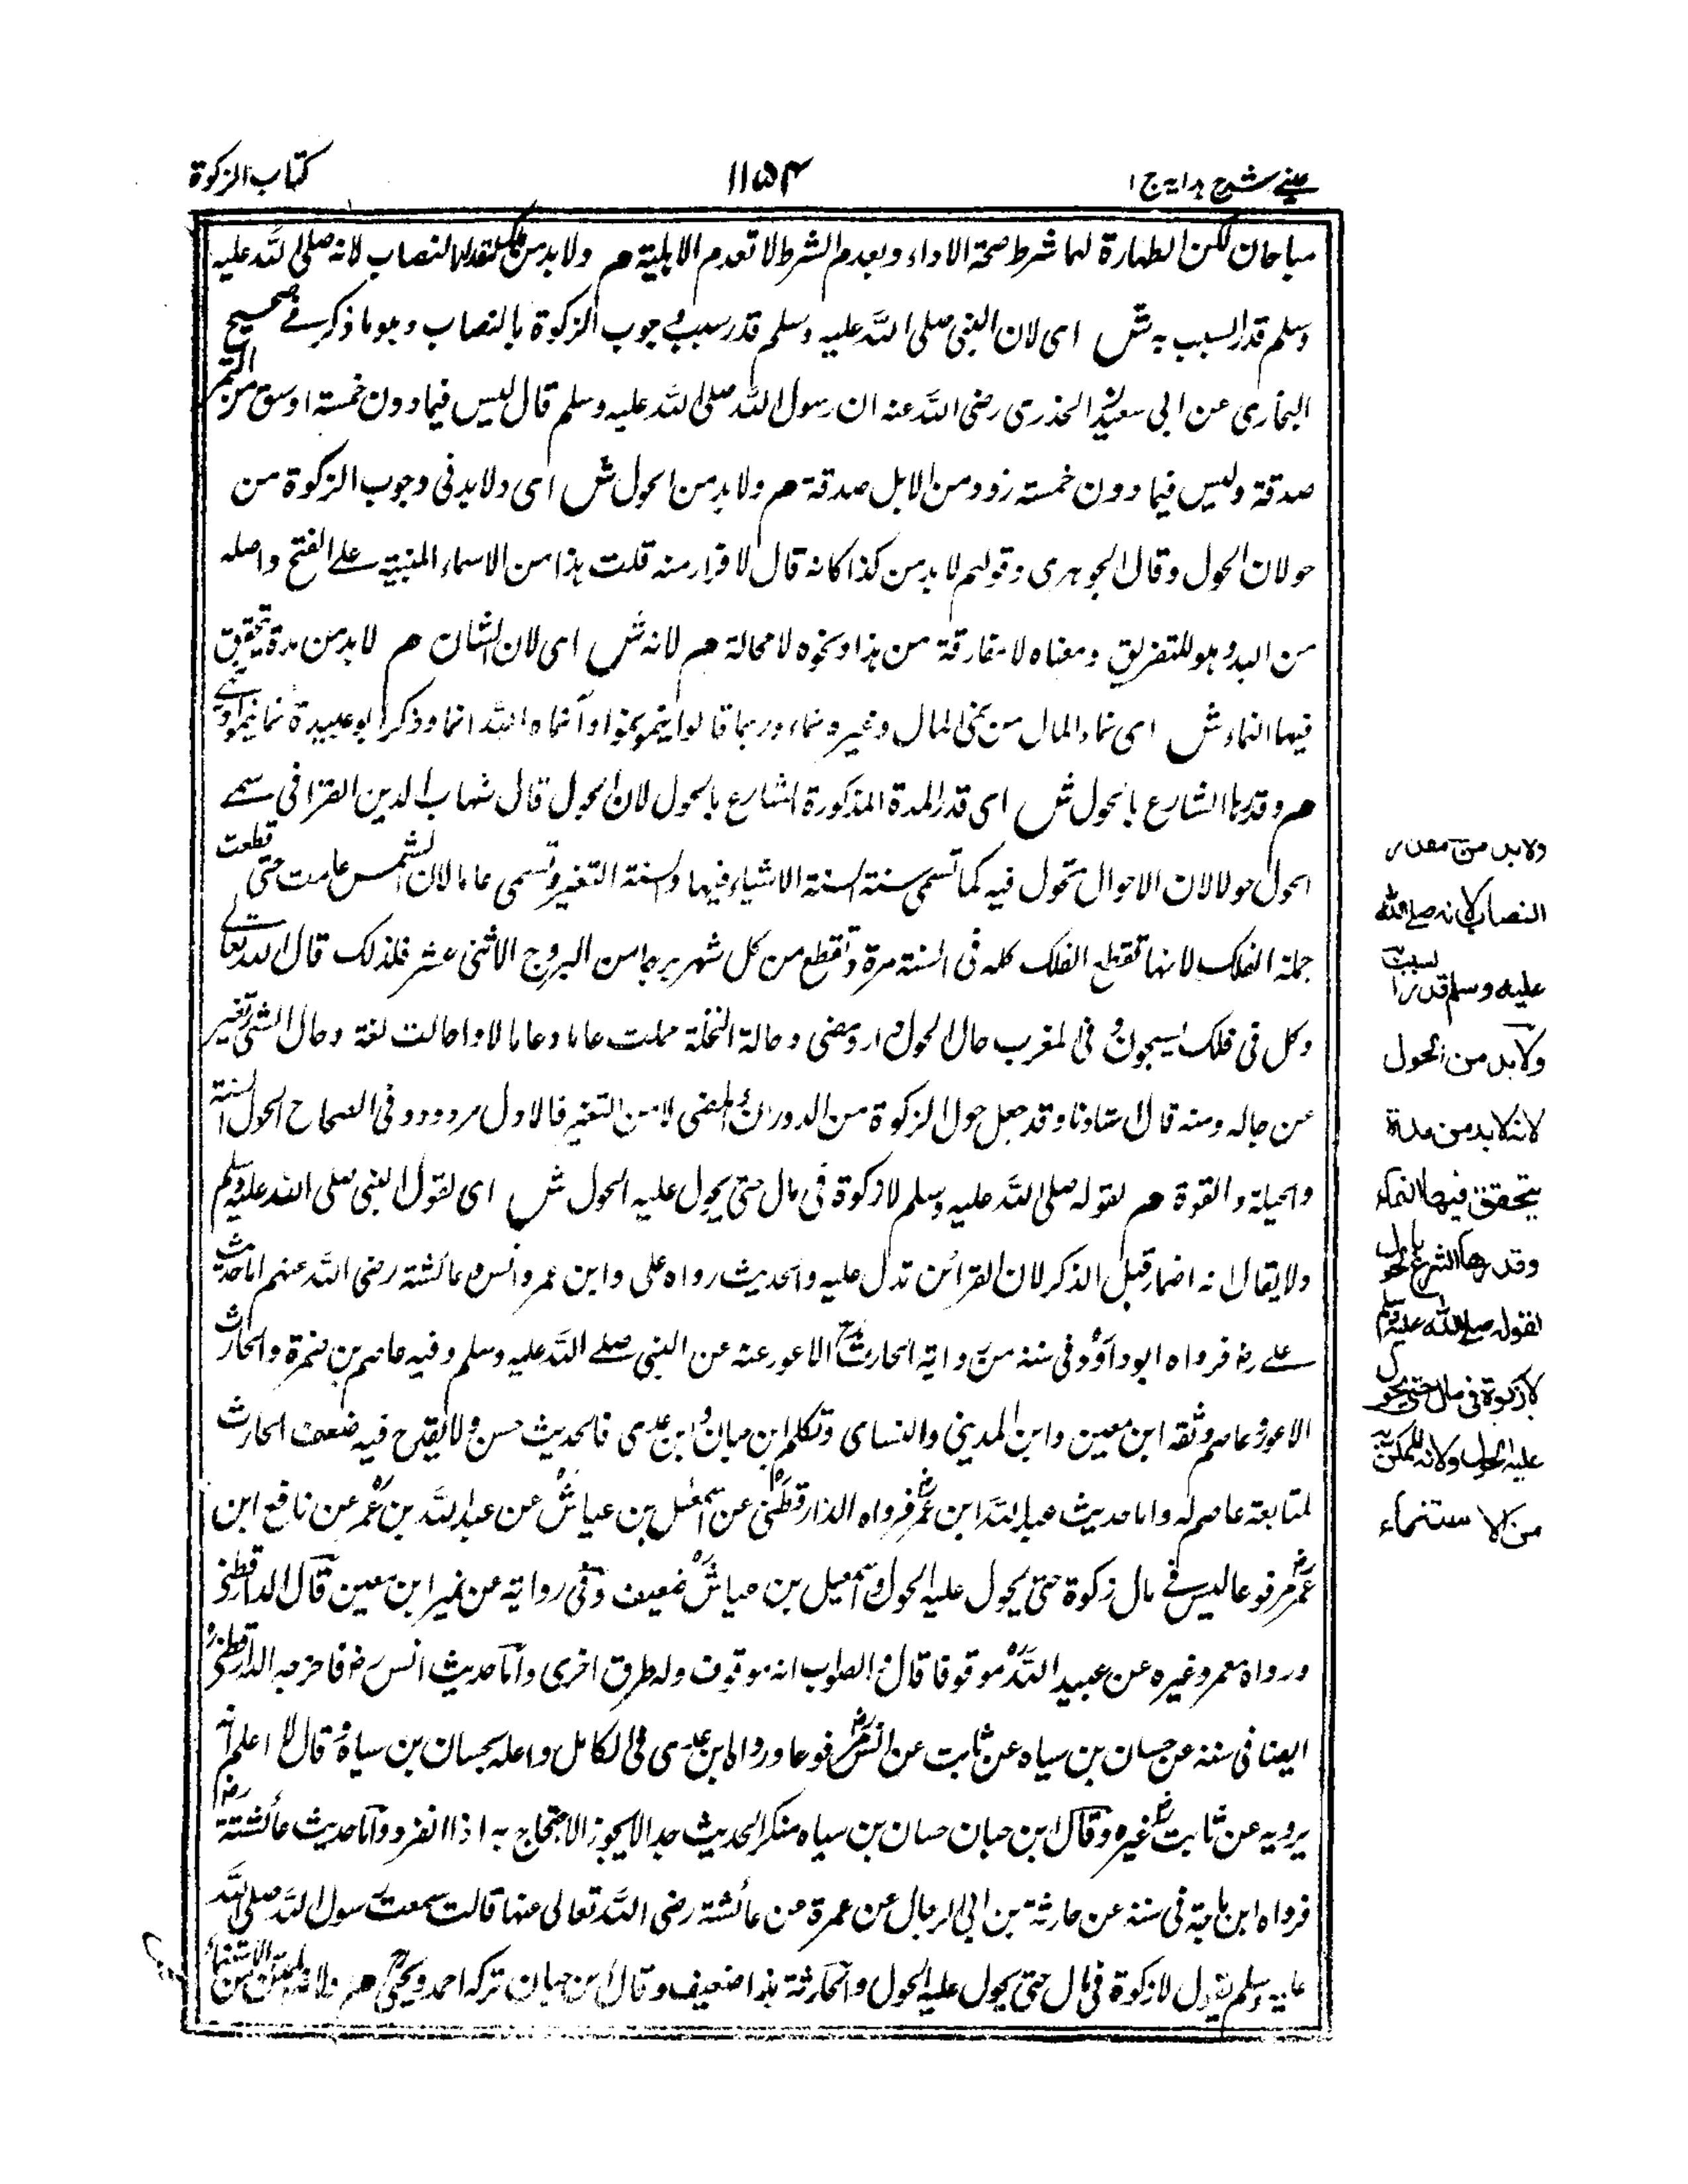 عينى شرح هدايه ج ۱
۱۱۵۴
كتاب الزكوة
مباحان لكن الطهارة لهما شرط صحة الاداء وبعدم الشرط لا تعدم الاهلية هم ولا بد من ملك مقدار النصاب لانه صلى الله عليه
وسلم قدر السبب به ش اى لان النبى صلى الله عليه وسلم قدر سبب وجوب الزكوة بالنصاب وهو ما ذكر فى صحيح
البخارى عن ابى سعيد الخدرى رضى الله عنه ان رسول الله صلى الله عليه وسلم قال ليس فيما دون خمسة اوسق من التمر
صدقة وليس فيما دون خمسة زود من الابل صدقة هم ولا بد من الحول ش اى ولا بد فى وجوب الزكوة من
حولان الحول وقال الجوهرى وقولهم لا بد من كذا كانه قال لا فرار منه قلت هذا من الاسماء المبنية على الفتح واصله
من البد وهو للتفريق ومعناه لا مفارقة من هذا ونحوه لا محالة هم لانه ش اى لان الشان هم لا بد من مدة يتحقق
فيها النماء ش اى نماء المال من نمى المال وغيره ونماء وربما قالوا ينمو نموا وانماه الله انما وذكر ابو عبيدة نما ينمو و
هم وقدرها الشارع بالحول ش اى قدر المدة المذكورة الشارع بالحول لان الحول قال شهاب الدين القرافى سمى
الحول حولا لان الاحوال تحول فيه كما تسمى سنة لسنة الاشياء فيها والسنة التغير وتسمى عاما لان الشمس عامت حتى قطعت
جملة الفلك لانها تقطع الفلك كله فى السنة مرة وتقطع من كل شهر برجا من البروج الاثنى عشر فلذلك قال الله تعالى
وكل فى فلك يسبحون و فى المغرب حال الحول دار ومضى وحالة النخلة حملت عاما وعاما لا واحالت لغة وحال الشئ تغير
عن حاله ومنه قال استاذنا وقد جعل حول الزكوة من الدوران والمضى لا من التغير فالاول مردود و فى الصحاح الحول السنة
والحيلة والقوة هم لقوله صلى الله عليه وسلم لا زكوة فى مال حتى يحول عليه الحول ش اى لقول النبى صلى الله عليه وسلم
ولا يقال انه اضمار قبل الذكر لان القرائن تدل عليه والحديث رواه على وابن عمر وانس وعائشة رضى الله عنهم اما حديث
على رض فرواه ابو داؤد فى سننه من رواية الحارث الاعور عنه عن النبى صلى الله عليه وسلم وفيه عاصم بن ضمرة والحارث
الاعور و عاصم وثقه ابن معين وابن المدينى والنساى وتكلم ابن حبان و ابن عدى فالحديث حسن ولا يقدح فيه ضعف الحارث
لمتابعة عاصم له واما حديث عبد الله ابن عمر رض فرواه الدارقطنى عن اسمعيل بن عياش عن عبد الله بن عمر عن نافع ابن
عمر رض مرفوعا ليس فى مال زكوة حتى يحول عليه الحول واسمعيل بن عياش ضعيف وفى رواية عن غير ابن معين قال الدارقطنى
ورواه معمر وغيره عن عبيد الله موقوفا قال والصواب انه موقوف وله طرق اخرى واما حديث انس رض فاخرجه الدارقطنى
ايضا فى سننه عن حسان بن سياه عن ثابت عن انس رض مرفوعا ورواه ابن عدى فى الكامل واعله بحسان بن سياه و قال لا اعلم انه
يرويه عن ثابت غيره وقال ابن حبان حسان بن سياه منكر الحديث جدا لا يجوز الاحتجاج به اذا انفرد واما حديث عائشة رض
فرواه ابن ماجة فى سننه عن حارثة بن ابى الرجال عن عمرة عن عائشة رضى الله تعالى عنها قالت سمعت رسول الله صلى الله
عليه وسلم يقول لا زكوة فى مال حتى يحول عليه الحول والحارثة هذا ضعيف وقال ابن حبان تركه احمد ويحيى هم ولانه الممكن من الاستنماء
ولا بد من مقدار
النصاب لانه صلى الله
عليه وسلم قدر السبب به
ولا بد من الحول
لانه لا بد من مدة
يتحقق فيها النماء
وقدرها الشرع بالحول
لقوله صلى الله عليه وسلم
لا زكوة فى مال حتى يحول
عليه الحول ولانه الممكن به
من الاستنماء